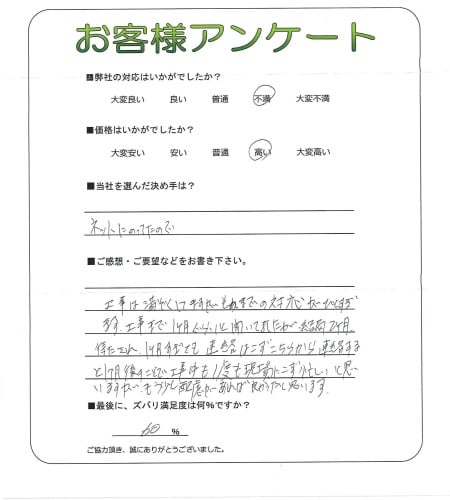 お客様アンケート
■弊社の対応はいかがでしたか?
大変良い 良い 普通 不満 大変不満
■価格はいかがでしたか?
大変安い 安い 普通 高い 大変高い
■当社を選んだ決め手は?
ネットにのってたので
■ご感想・ご要望などをお書き下さい。
工事は までの対応が
ます。工事まで1ヶ月くらいと聞いてれたが結局2ヶ月
待たされ、1ヶ月すぎても連絡はこずこちらから連絡する
と1ヶ月後 工事中も1度も現場にこず忙しいと思
いますがもう少し配慮があれば良かったと思います。
■最後に、ズバリ満足度は何%ですか?
60 %
ご協力頂き、誠にありがとうございました。